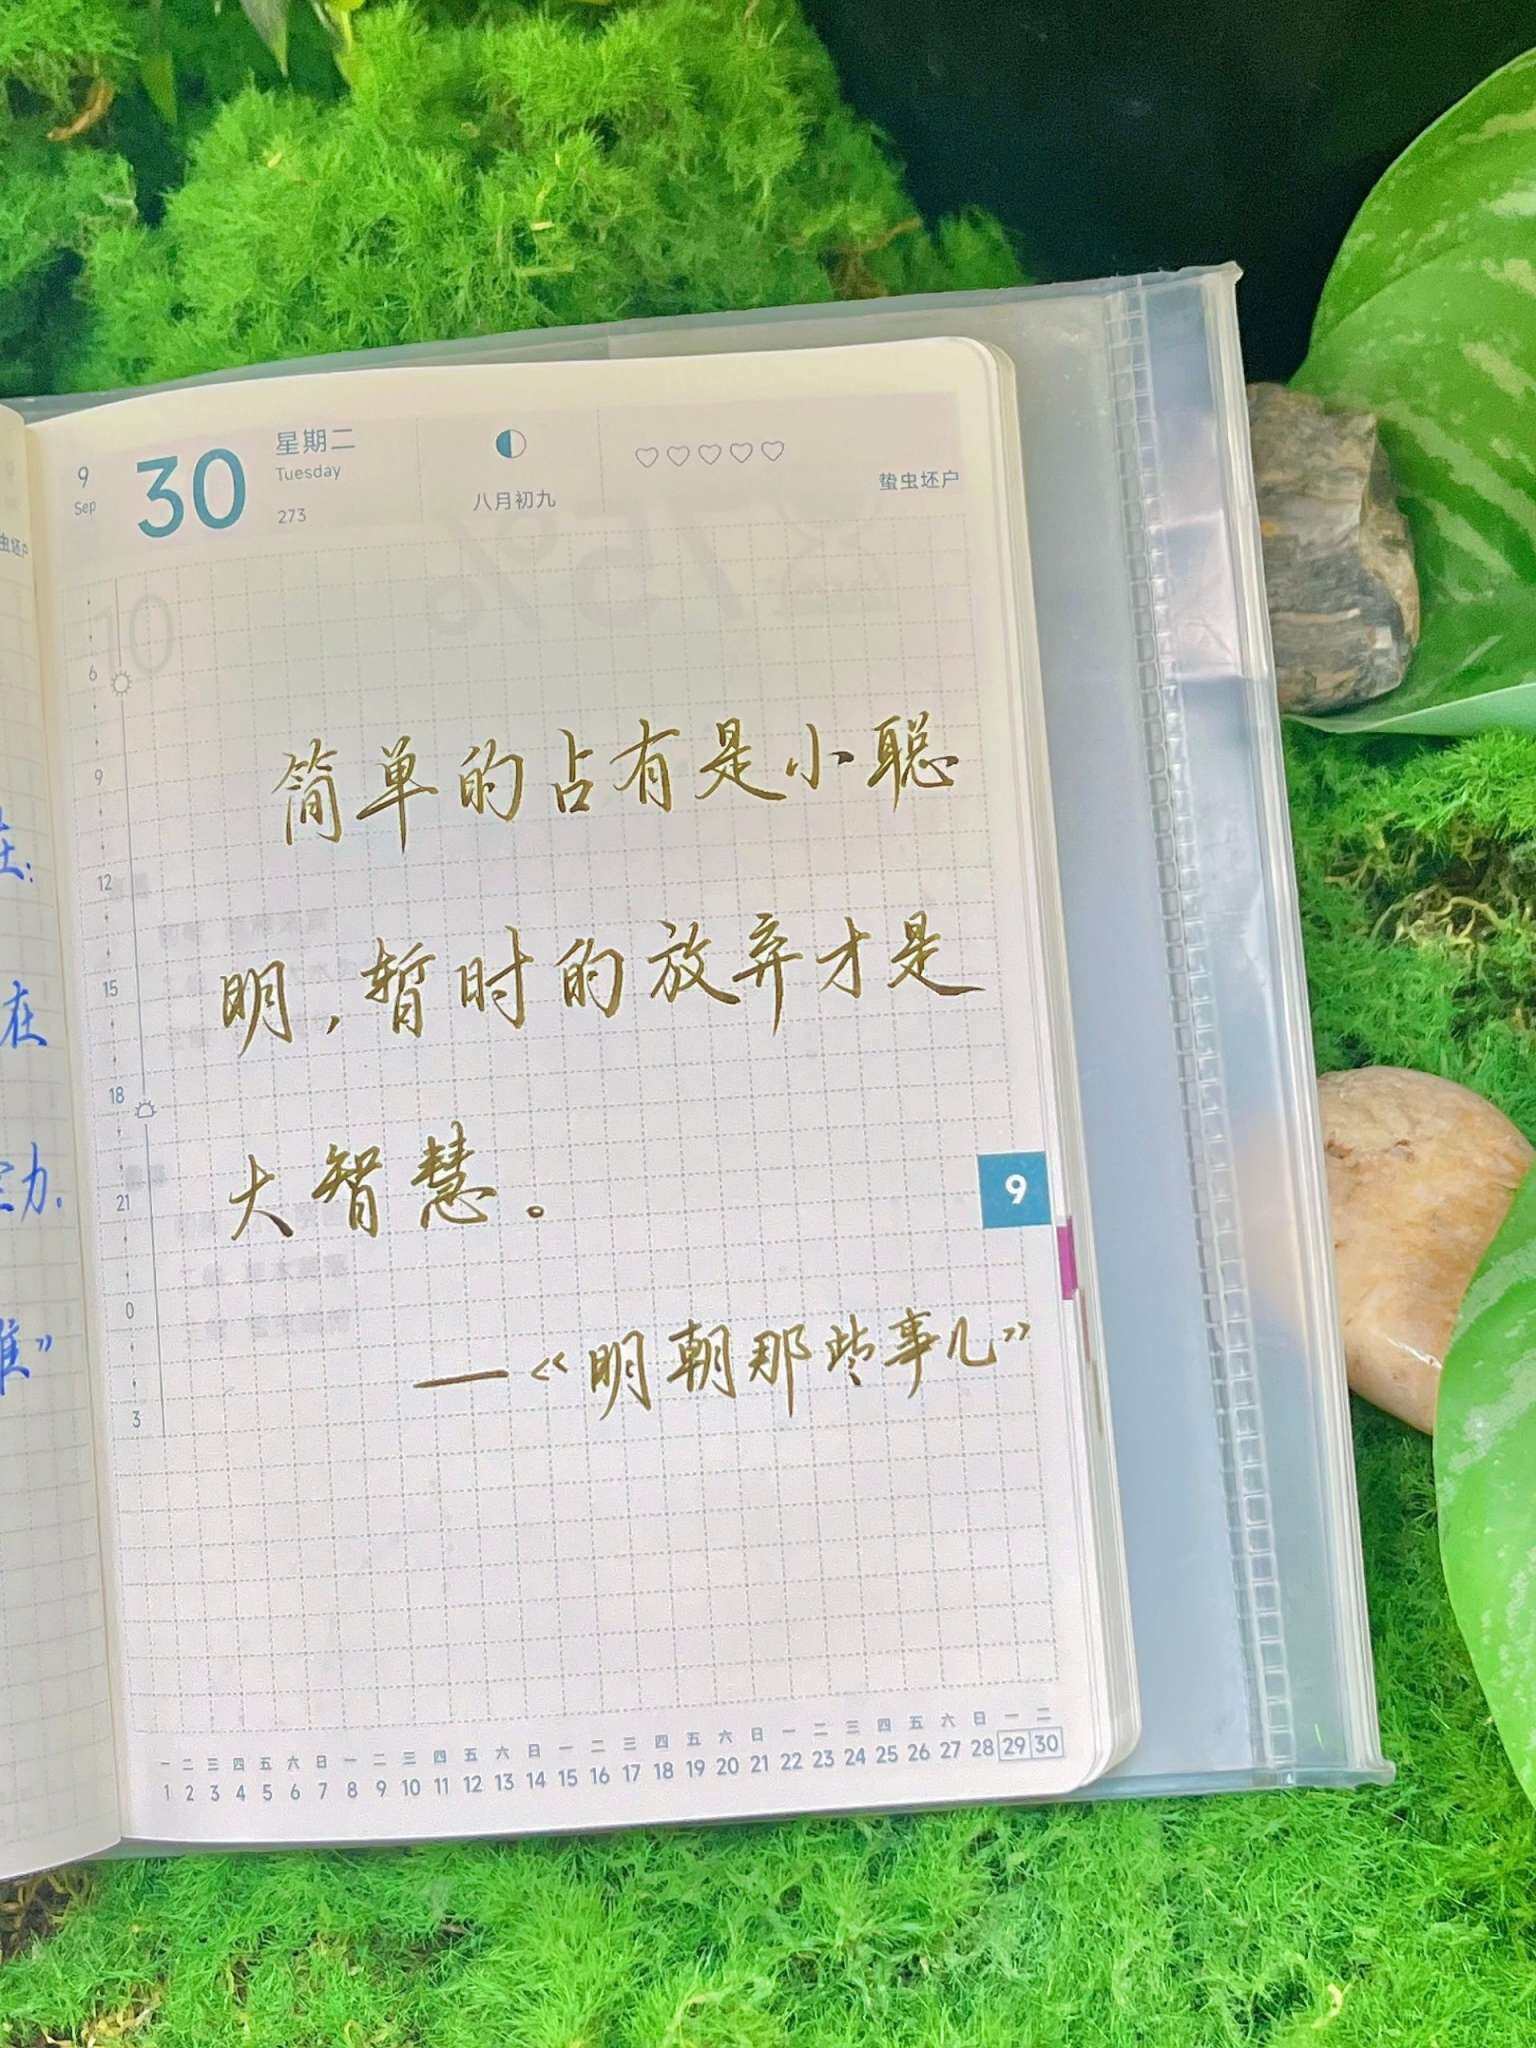 9
Sep
30
星期二
Tuesday
273
八月初九
蛰虫坯户
虫坯户
6
9
12
15
18
21
0
3
简单的占有是小聪
明，暂时的放弃才是
大智慧。
——《明朝那些事儿》
9
在
力。
准”
一 二 三 四 五 六 日 一 二 三 四 五 六 日 一 二 三 四 五 六 日 一 二 三 四 五 六 日 一 二
1 2 3 4 5 6 7 8 9 10 11 12 13 14 15 16 17 18 19 20 21 22 23 24 25 26 27 28 29 30